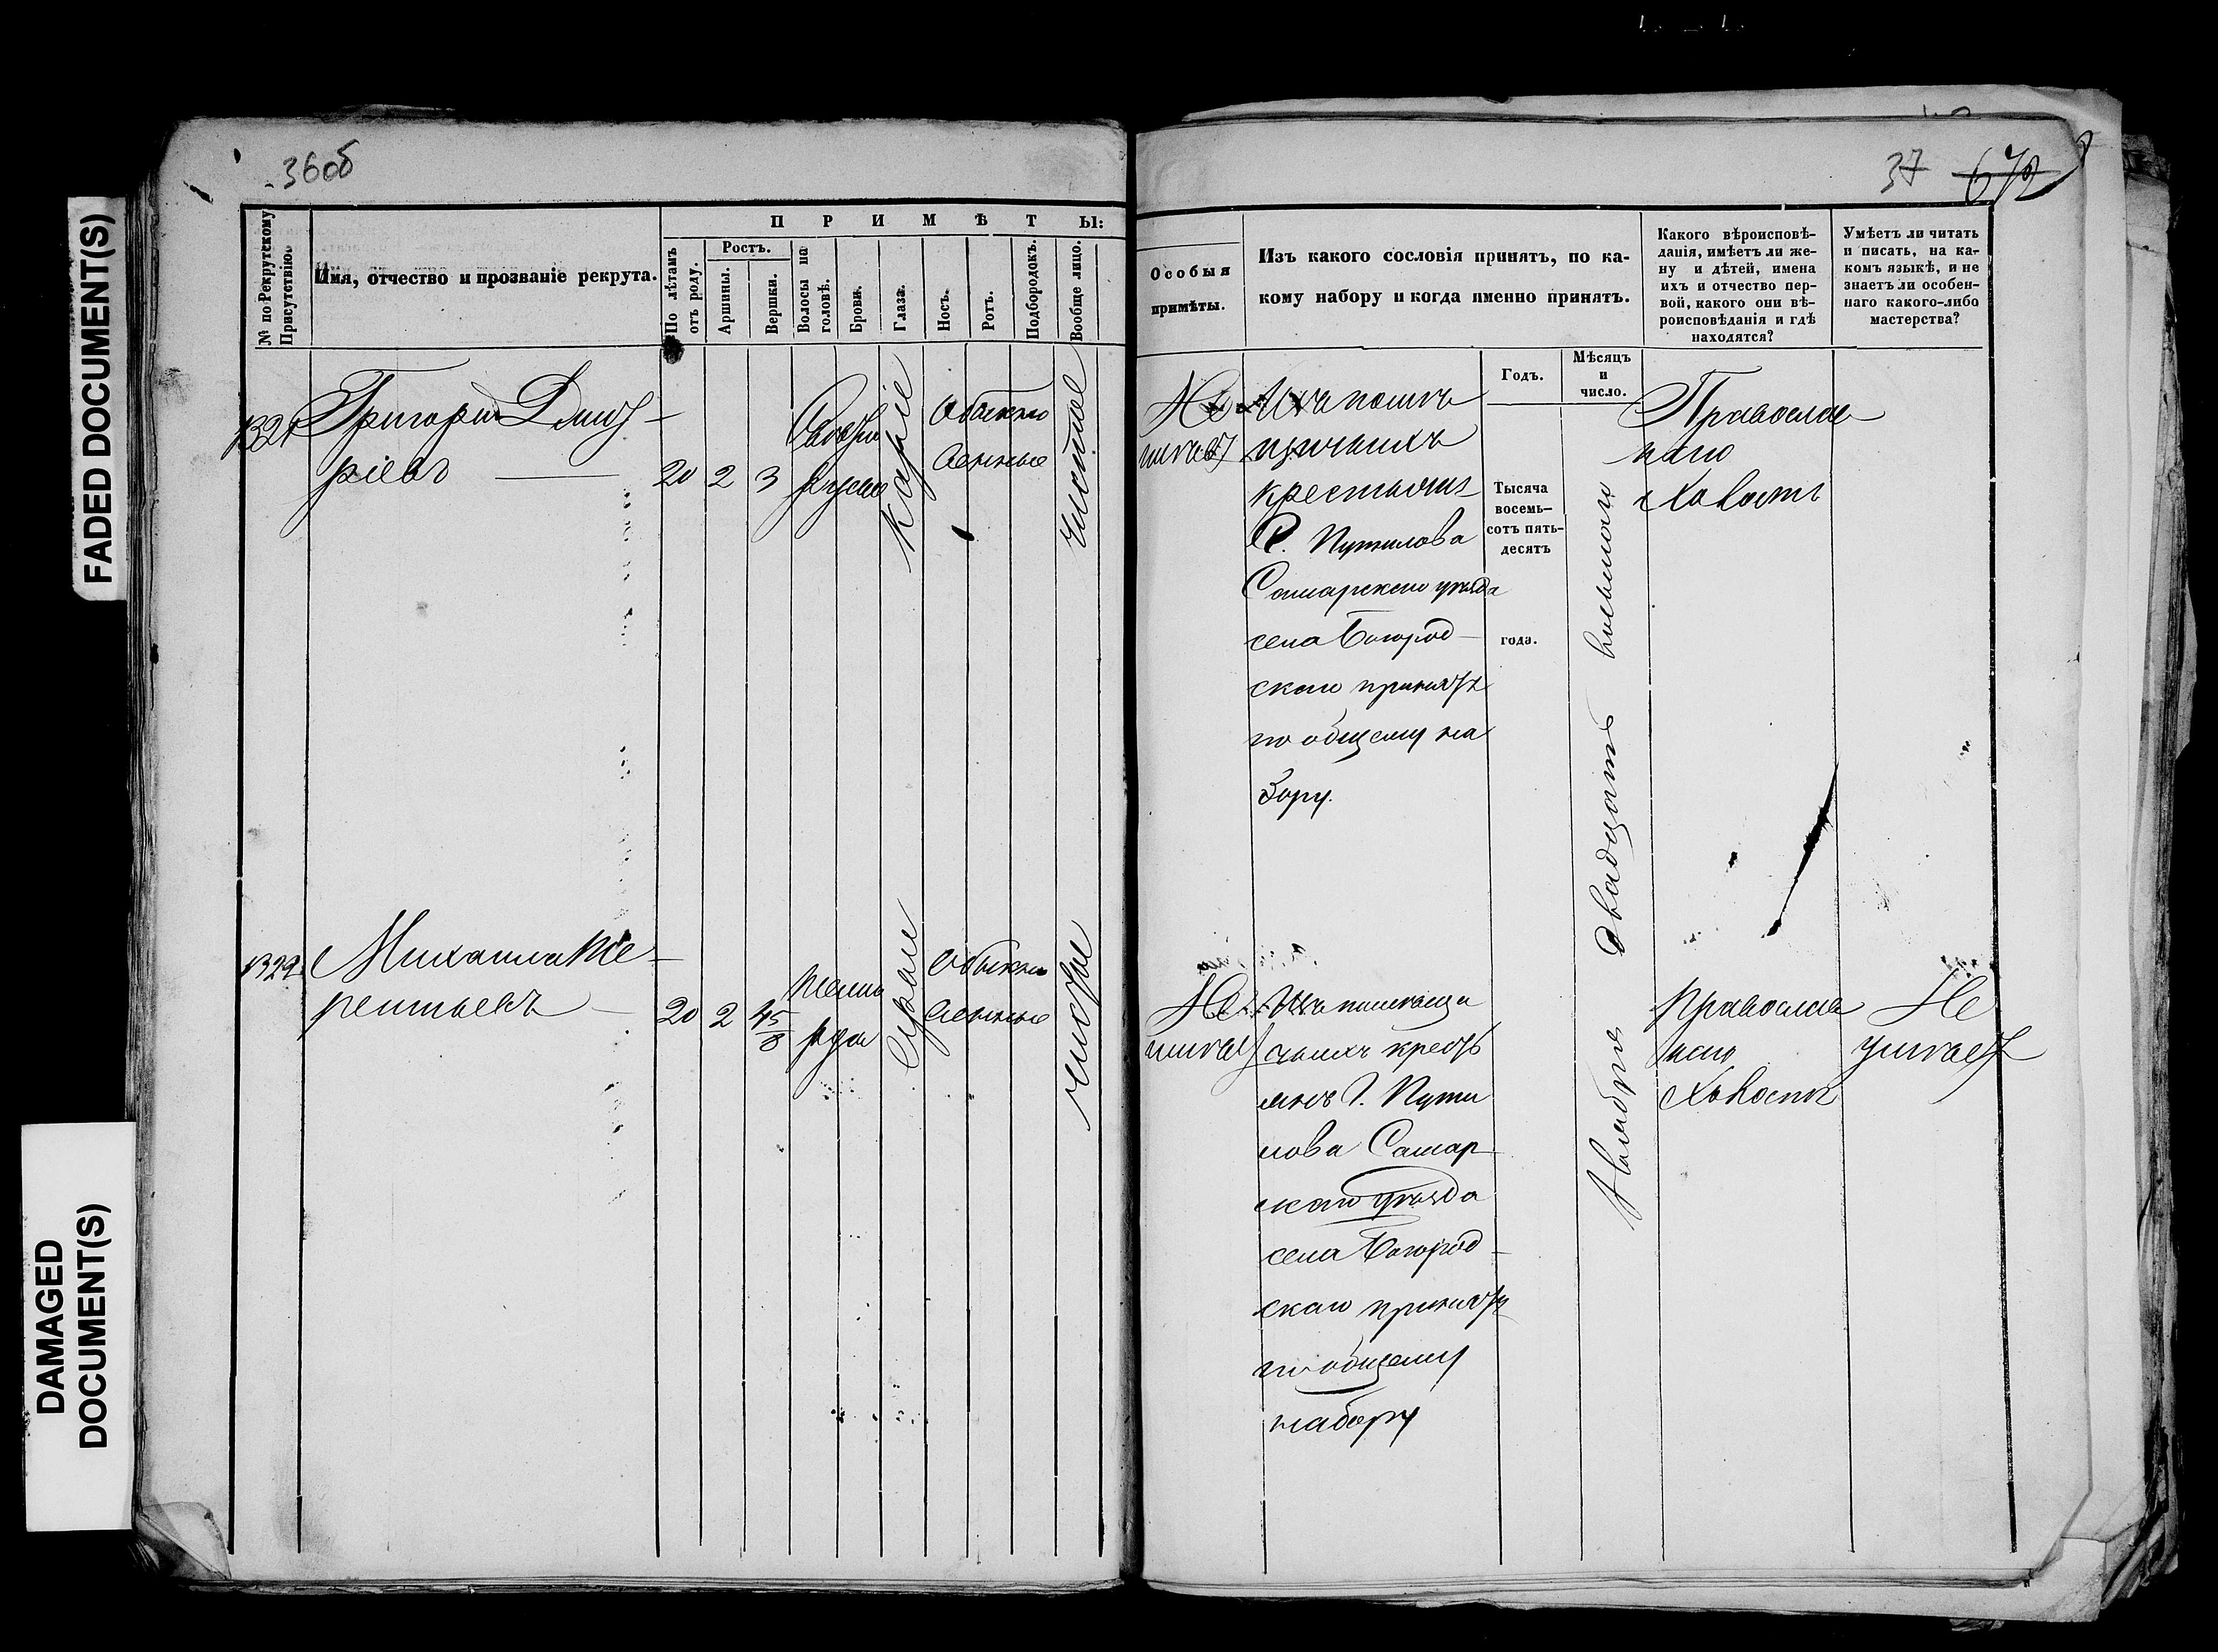 FADED DOCUMENT(S)
DAMAGED
DOCUMENT(S)
36об
П Р И М Ѣ Т Ы:
№ по Рекрутскому
Присутствію.
Имя, отчество и прозваніе рекрута.
По лѣтамъ
отъ роду.
Ростъ.
Аршины.
Вершки.
Волосы на
головѣ.
Брови.
Глаза.
Носъ.
Ротъ.
Подбородокъ.
Вообще лицо.
1321
Григорій Дмит
ріевъ
20
2
3
русые
Каріе
Обыкно
венные
чистое
1322
Михаила Те
рентьевъ
20
2
4 5/8
темно
русы
Серые
Обыкно
венные
чистое
37 672
Особыя
примѣты.
Изъ какого сословія принятъ, по ка-
кому набору и когда именно принятъ.
Годъ.
Мѣсяцъ
и
число.
Какого вѣроисповѣ-
данія, имѣетъ ли же-
ну и дѣтей, имена
ихъ и отчество пер-
вой, какого они вѣ-
роисповѣданія и гдѣ
находятся?
Умѣетъ ли читать
и писать, на ка-
комъ языкѣ, и не
знаетъ ли особен-
наго какого-либо
мастерства?
Не
имѣетъ
Изъ помѣ
щичьихъ
крестьянъ
Г. Путилова
Самарскаго уѣзда
села Богород
скаго принятъ
по общему на
бору.
Тысяча
восемь-
сотъ пять-
десятъ
года.
Ноября двадцать восьмого
Православ
наго
Холостъ
Не
имѣетъ
Изъ помѣщи
чьихъ кресть
янъ Г. Пути
лова Самар
скаго уѣзда
села Богород
скаго принятъ
по общему
набору
Православ
наго
Холостъ
Не
умѣетъ